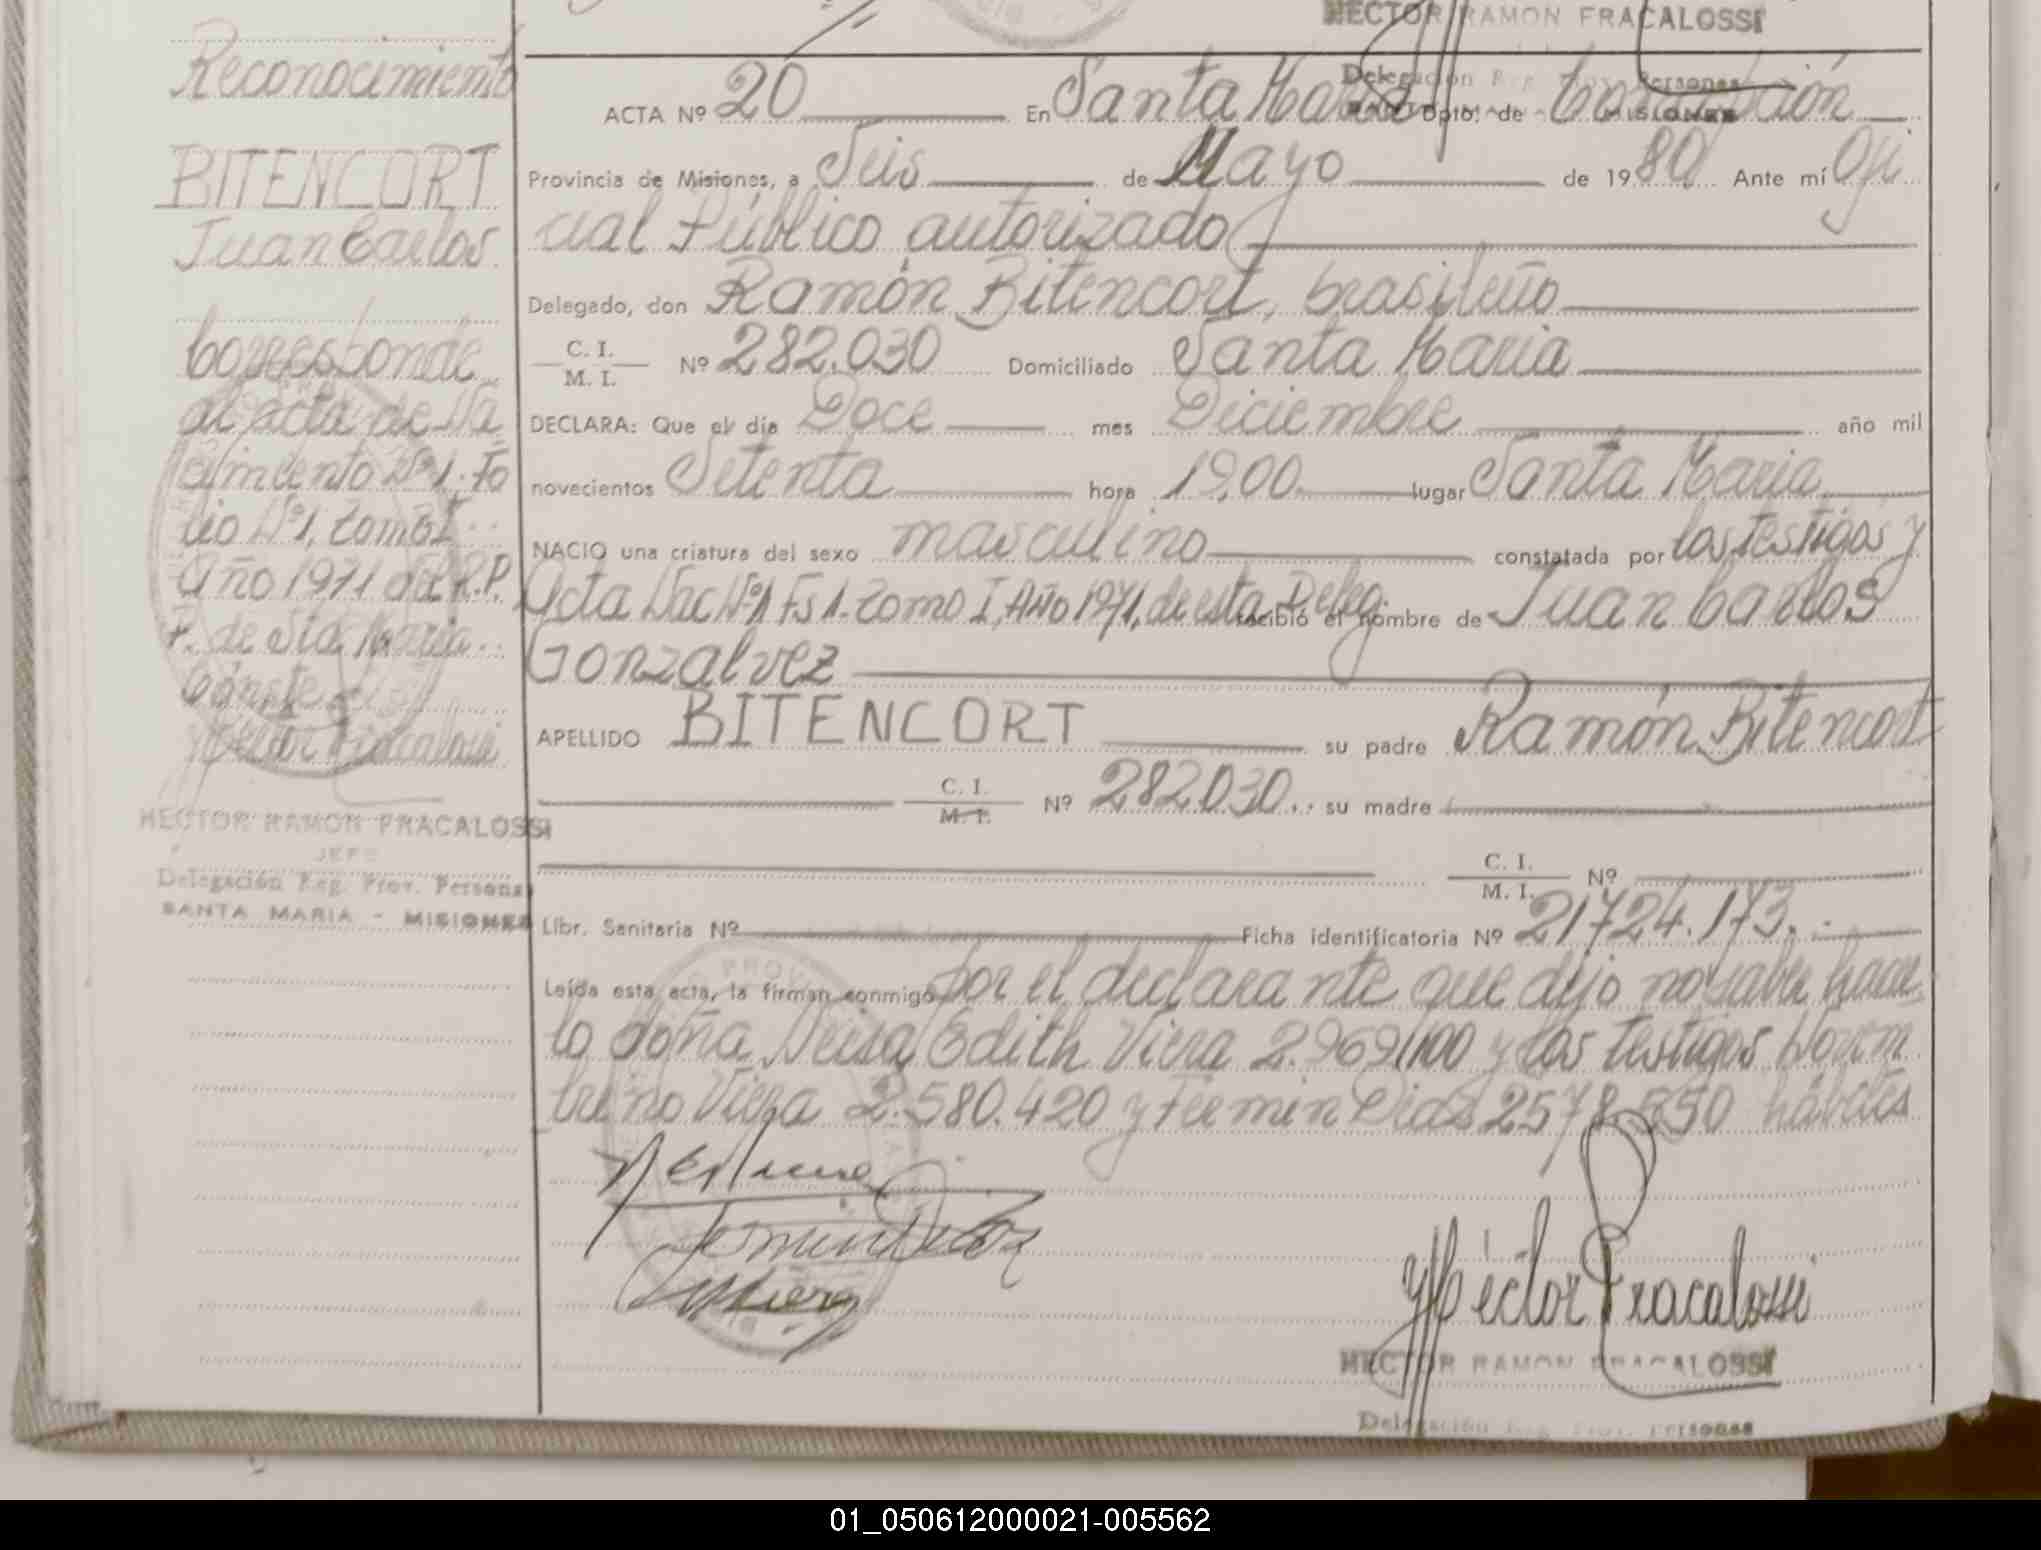 HECTOR RAMON FRACALOSSI
Delegación Reg. Prov. Personas
MISIONES
Reconocimiento
BITENCORT
Juan Carlos
Corresponde
al acta de Na
cimiento Nº 1. Fo
lio Nº 1, Tomo I
Año 1971 del R.P.
P. de Sta María
Conste
Héctor Fracalossi
HECTOR RAMON FRACALOSSI
JEFE
Delegación Reg. Prov. Personas
SANTA MARIA - MISIONES
ACTA Nº 20 En Santa María Dpto. de Concepción
Provincia de Misiones, a Seis de Mayo de 1980 Ante mí Ofi
cial Público autorizado
Delegado, don Ramón Bitencort, brasileño
C. I. M. I. Nº 282.030 Domiciliado Santa María
DECLARA: Que el día Doce mes Diciembre año mil
novecientos Setenta hora 19,00 lugar Santa María
NACIO una criatura del sexo masculino constatada por los testigos y
Acta Nac Nº 1 Fs 1. Tomo I, Año 1971, de esta Deleg. recibió el nombre de Juan Carlos
Gonzalvez
APELLIDO BITENCORT su padre Ramón Bitencort
C. I. M. I. Nº 282.030 su madre
C. I. M. I. Nº
Libr. Sanitaria Nº Ficha identificatoria Nº 21724.173.
Leída esta acta, la firman conmigo por el declarante que dijo no saber hacer
lo doña Neisa Edith Viera 2.969.100 y los testigos Novem
brino Viera 2.580.420 y Fermin Diaz 2578.550 hábiles
Fermin Diaz
Héctor Fracalossi
HECTOR RAMON FRACALOSSI
Delegación Reg. Prov. Personas
01_050612000021-005562